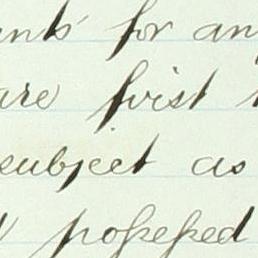 for an
are first
subject as
possessed